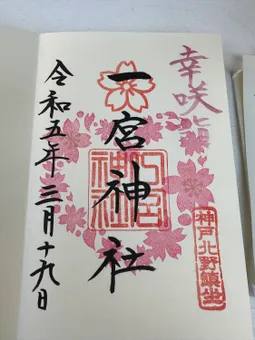 幸咲詣
一宮神社
一宮神社
神戸北野鎮坐
令和五年三月十九日